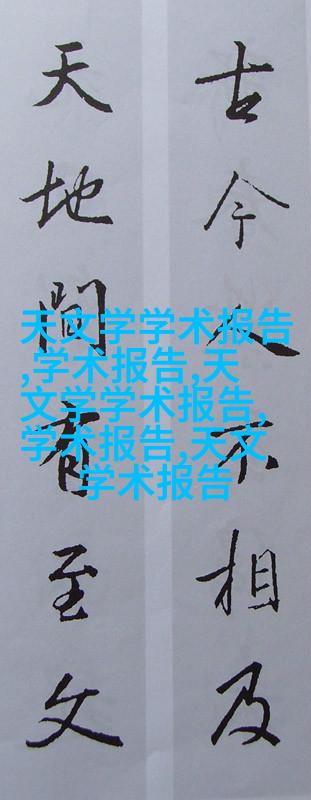 古今人不相及
天地間有至文
天文学学术报告
,学术报告,天
文学学术报告,
学术报告,天文
学术报告